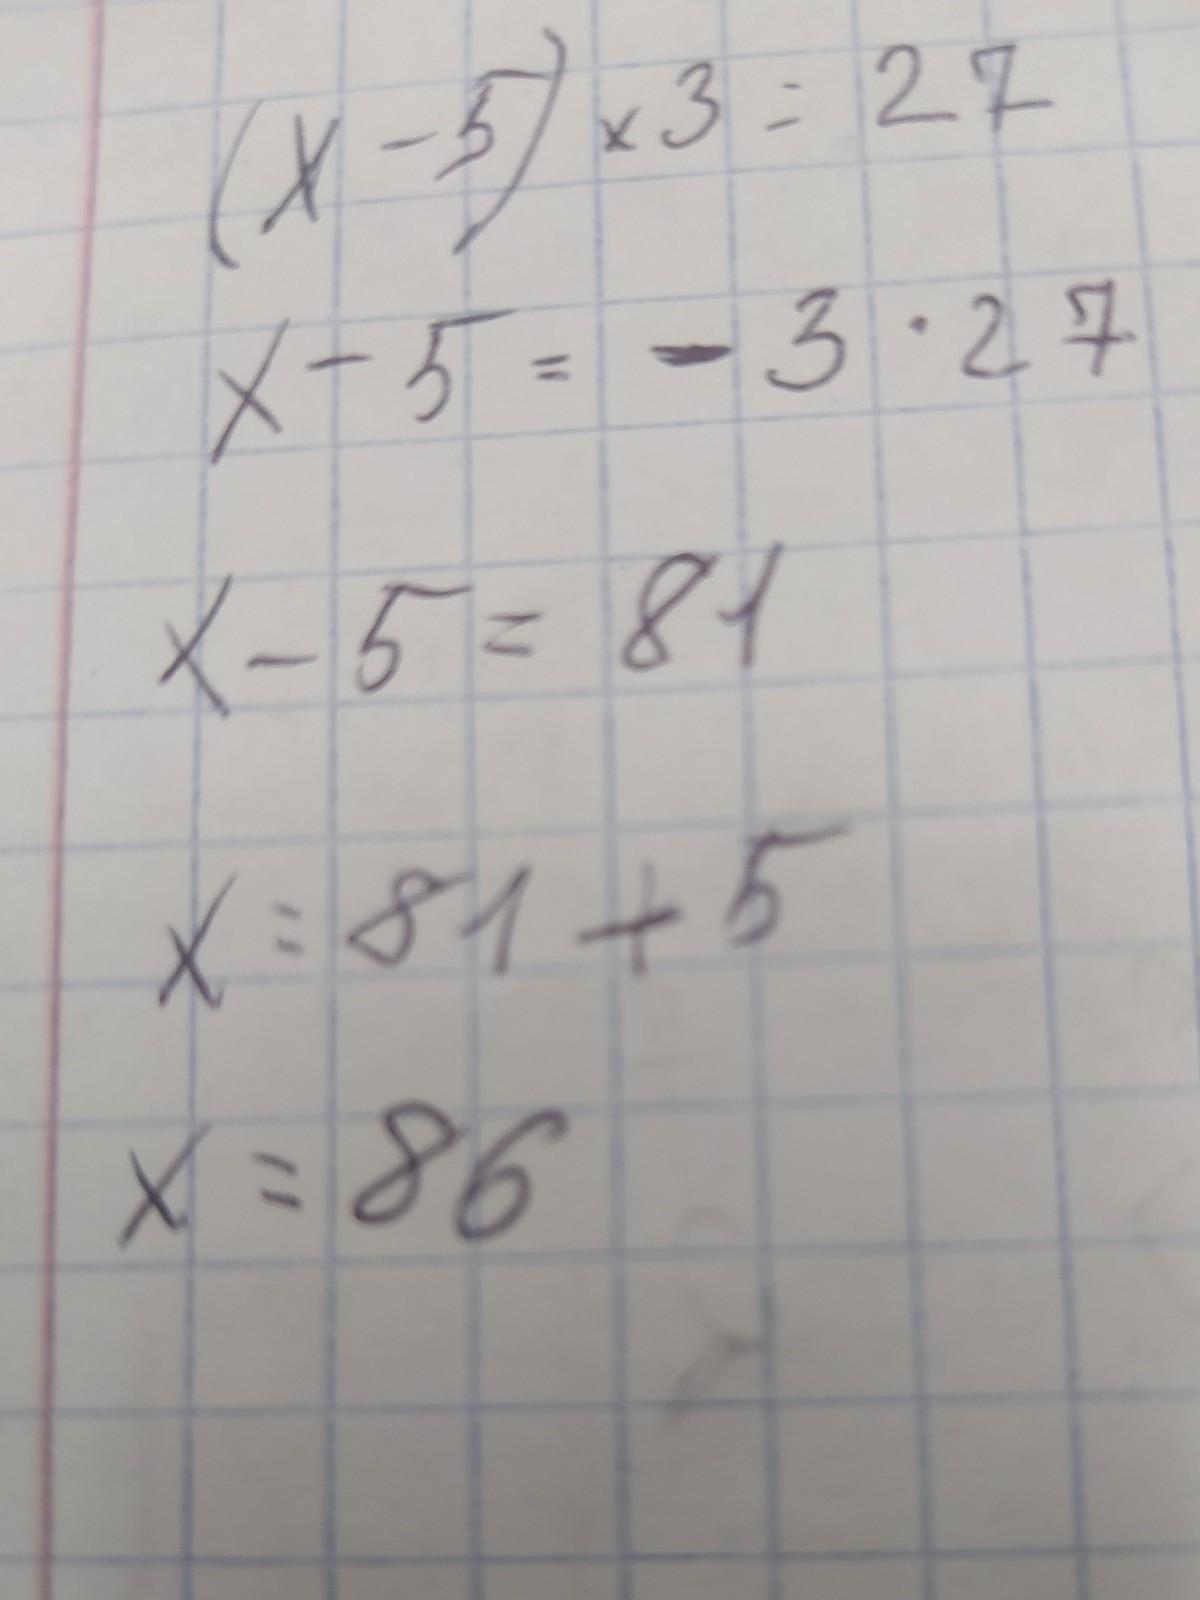 (x - 5) × 3 = 27
x - 5 = - 3 · 27
x - 5 = 81
x = 81 + 5
x = 86